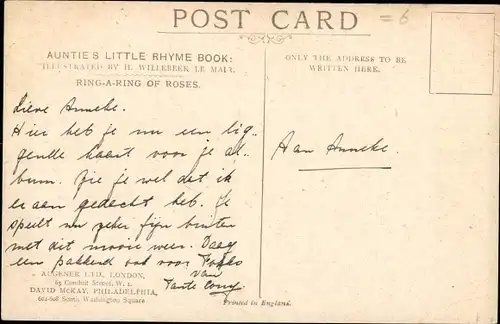 POST CARD
= 6
AUNTIE'S LITTLE RHYME BOOK:
ILLUSTRATED BY H. WILLEBEEK LE MAIR.
RING-A-RING OF ROSES.
ONLY THE ADDRESS TO BE
WRITTEN HERE.
Lieve Anneke.
Hier heb je nu een lig-
gende kaart voor je al-
bum. Zie je wel dat ik
er aan gedacht heb. Je
speelt nu zeker fijn buiten
met dit mooie weer. Daag
een pakkerd ook voor
van
Tante Cony
Aan Anneke.
AUGENER LTD. LONDON,
63 Conduit Street, W. 1.
DAVID McKAY, PHILADELPHIA,
604-608 South Washington Square
Printed in England.